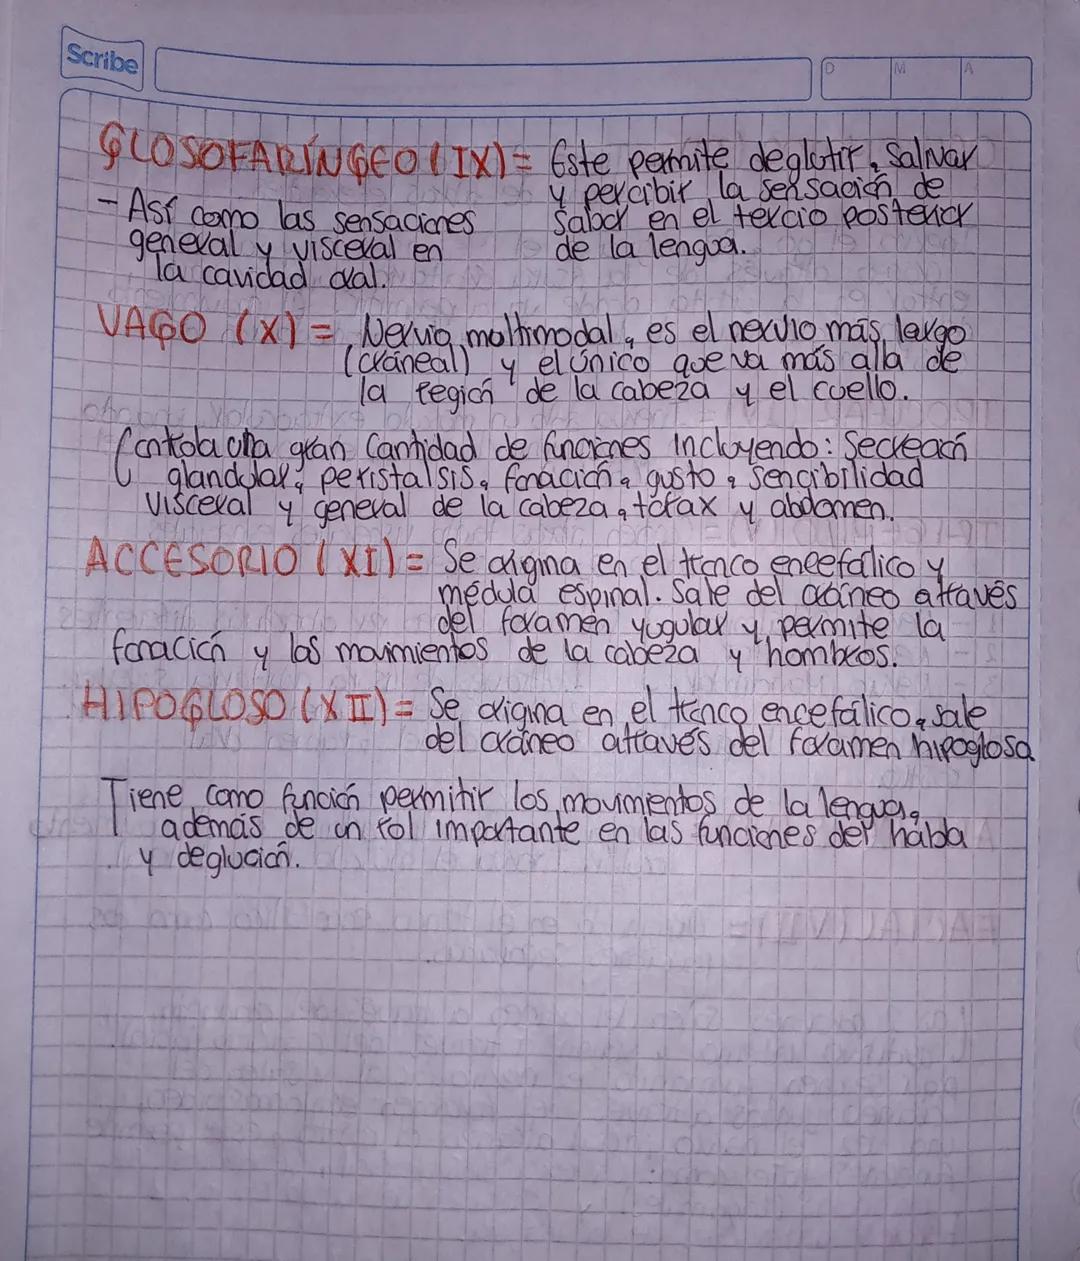 Scribe
D M A
GLOSOFARÍNGEO (IX) = Este permite deglutir, salivar
y percibir la sensación de
sabor en el tercio posterior
de la lengua.
- Así como las sensaciones
general y visceral en
la cavidad oral.
VAGO (X) = Nervio multimodal, es el nervio más largo
(cráneal) y el único que va más alla de
la región de la cabeza y el cuello.
Controla una gran cantidad de funciones incluyendo: Secreación
glandular, peristalsis, fonación, gusto, sencibilidad
visceral y general de la cabeza, tórax y abdomen.
ACCESORIO (XI) = Se origina en el tronco encefálico y
médula espinal. Sale del cráneo através
del foramen yugular y permite la
fonación y los movimientos de la cabeza y hombros.
HIPOGLOSO (XII) = Se origina en el tronco encefálico, sale
del cráneo através del foramen hipogloso
Tiene como función permitir los movimientos de la lengua,
además de un rol importante en las funciones del habla
y deglución.